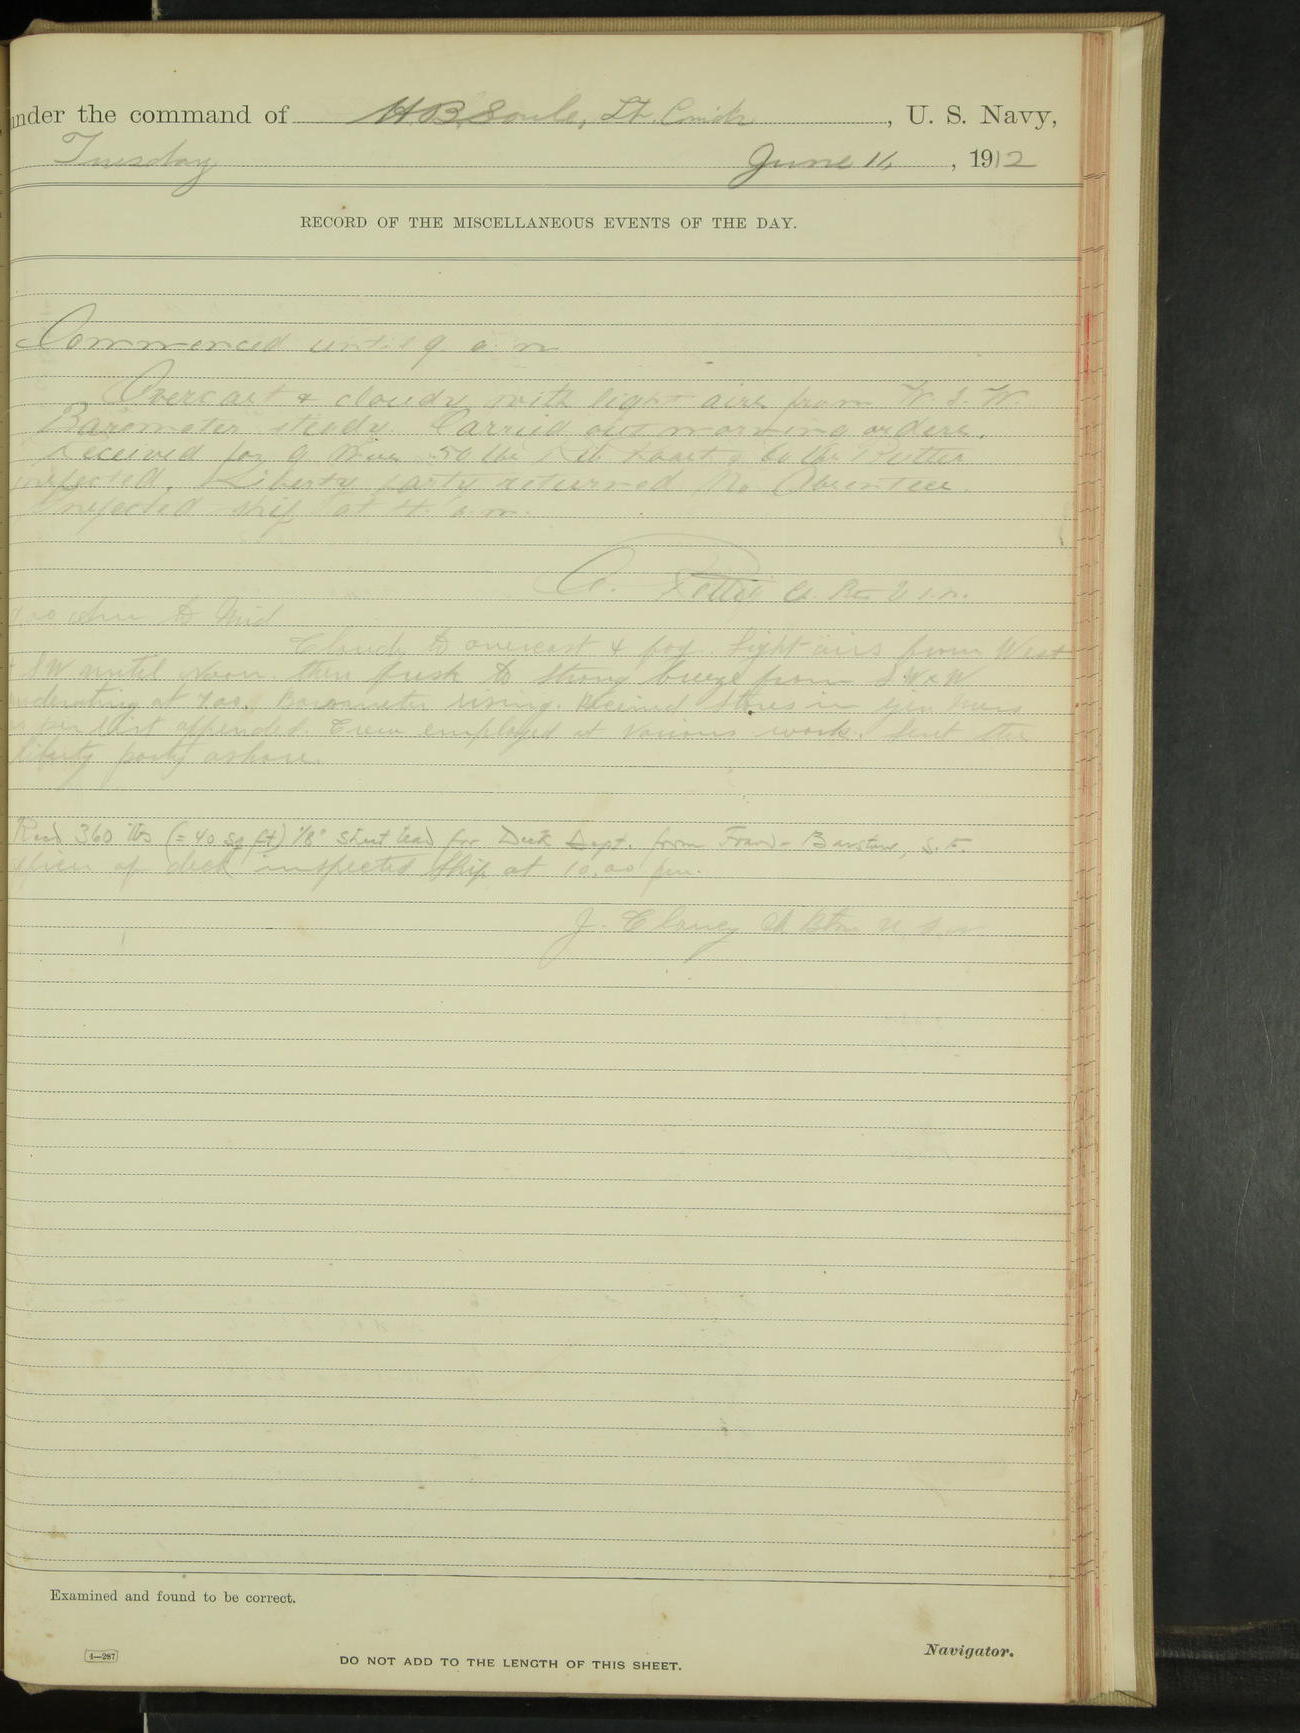 under the command of H. B. Soule, Lt. Comdr , U. S. Navy,
Tuesday June 11, , 1912
RECORD OF THE MISCELLANEOUS EVENTS OF THE DAY.
Commenced until 9 a m
Overcast & cloudy with light airs from W. S. W.
Barometer steady. Carried out morning orders.
Received for G 50 lbs
Liberty party returned No Absentees.
Inspected ship at 4 a m.
C. U.S.N.
to Mid
Cloudy to overcast & fog. Light airs from West
SW until noon. then fresh to strong breeze from SWxW
moderating at 7.00. Barometer rising. Received Stores in
as per list appended. Crew employed at various work. Sent the
liberty party ashore.
Recd 360 lbs (= 40 sq ft) 1/8" sheet lead for Deck Dept. from S. F.
officer of deck inspected Ship at 10.00 pm.
J. Clancy U.S.N
Examined and found to be correct.
4—287
DO NOT ADD TO THE LENGTH OF THIS SHEET.
Navigator.